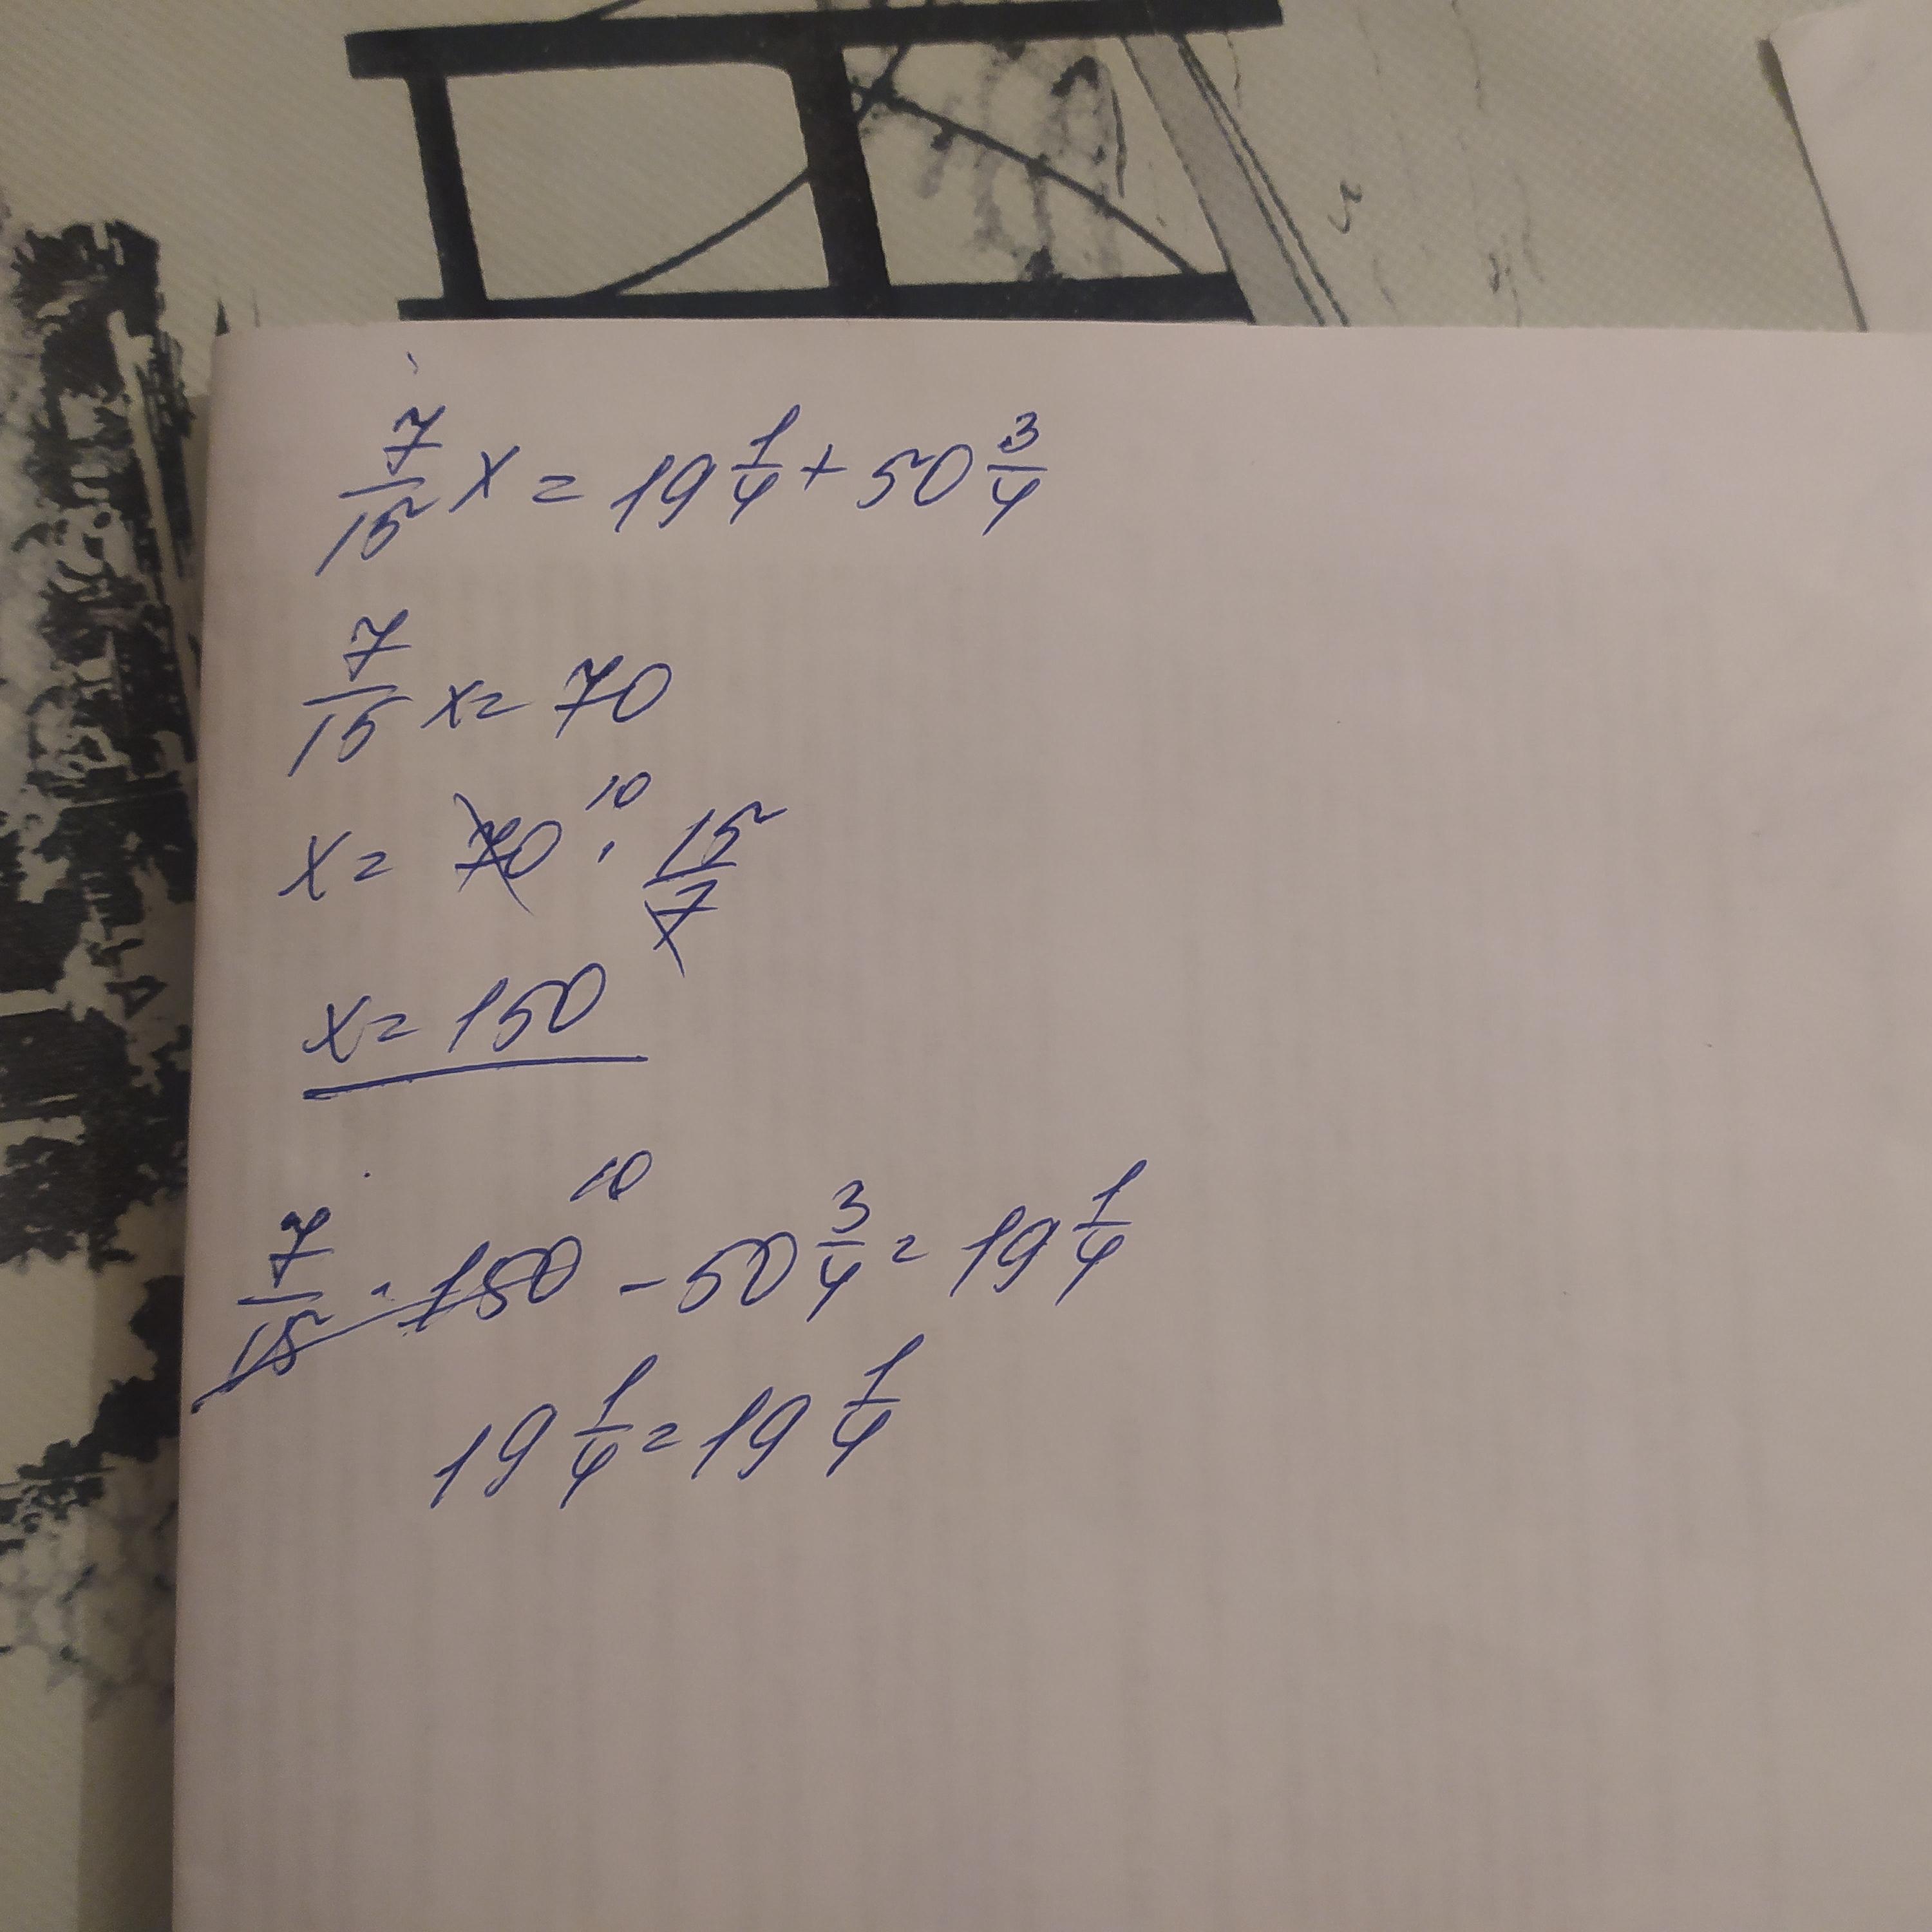 7/15 x = 19 1/4 + 50 3/4
7/15 x = 70
x = 70 10 · 15/7
x = 150
7/15 · 150 10 - 50 3/4 = 19 1/4
19 1/4 = 19 1/4